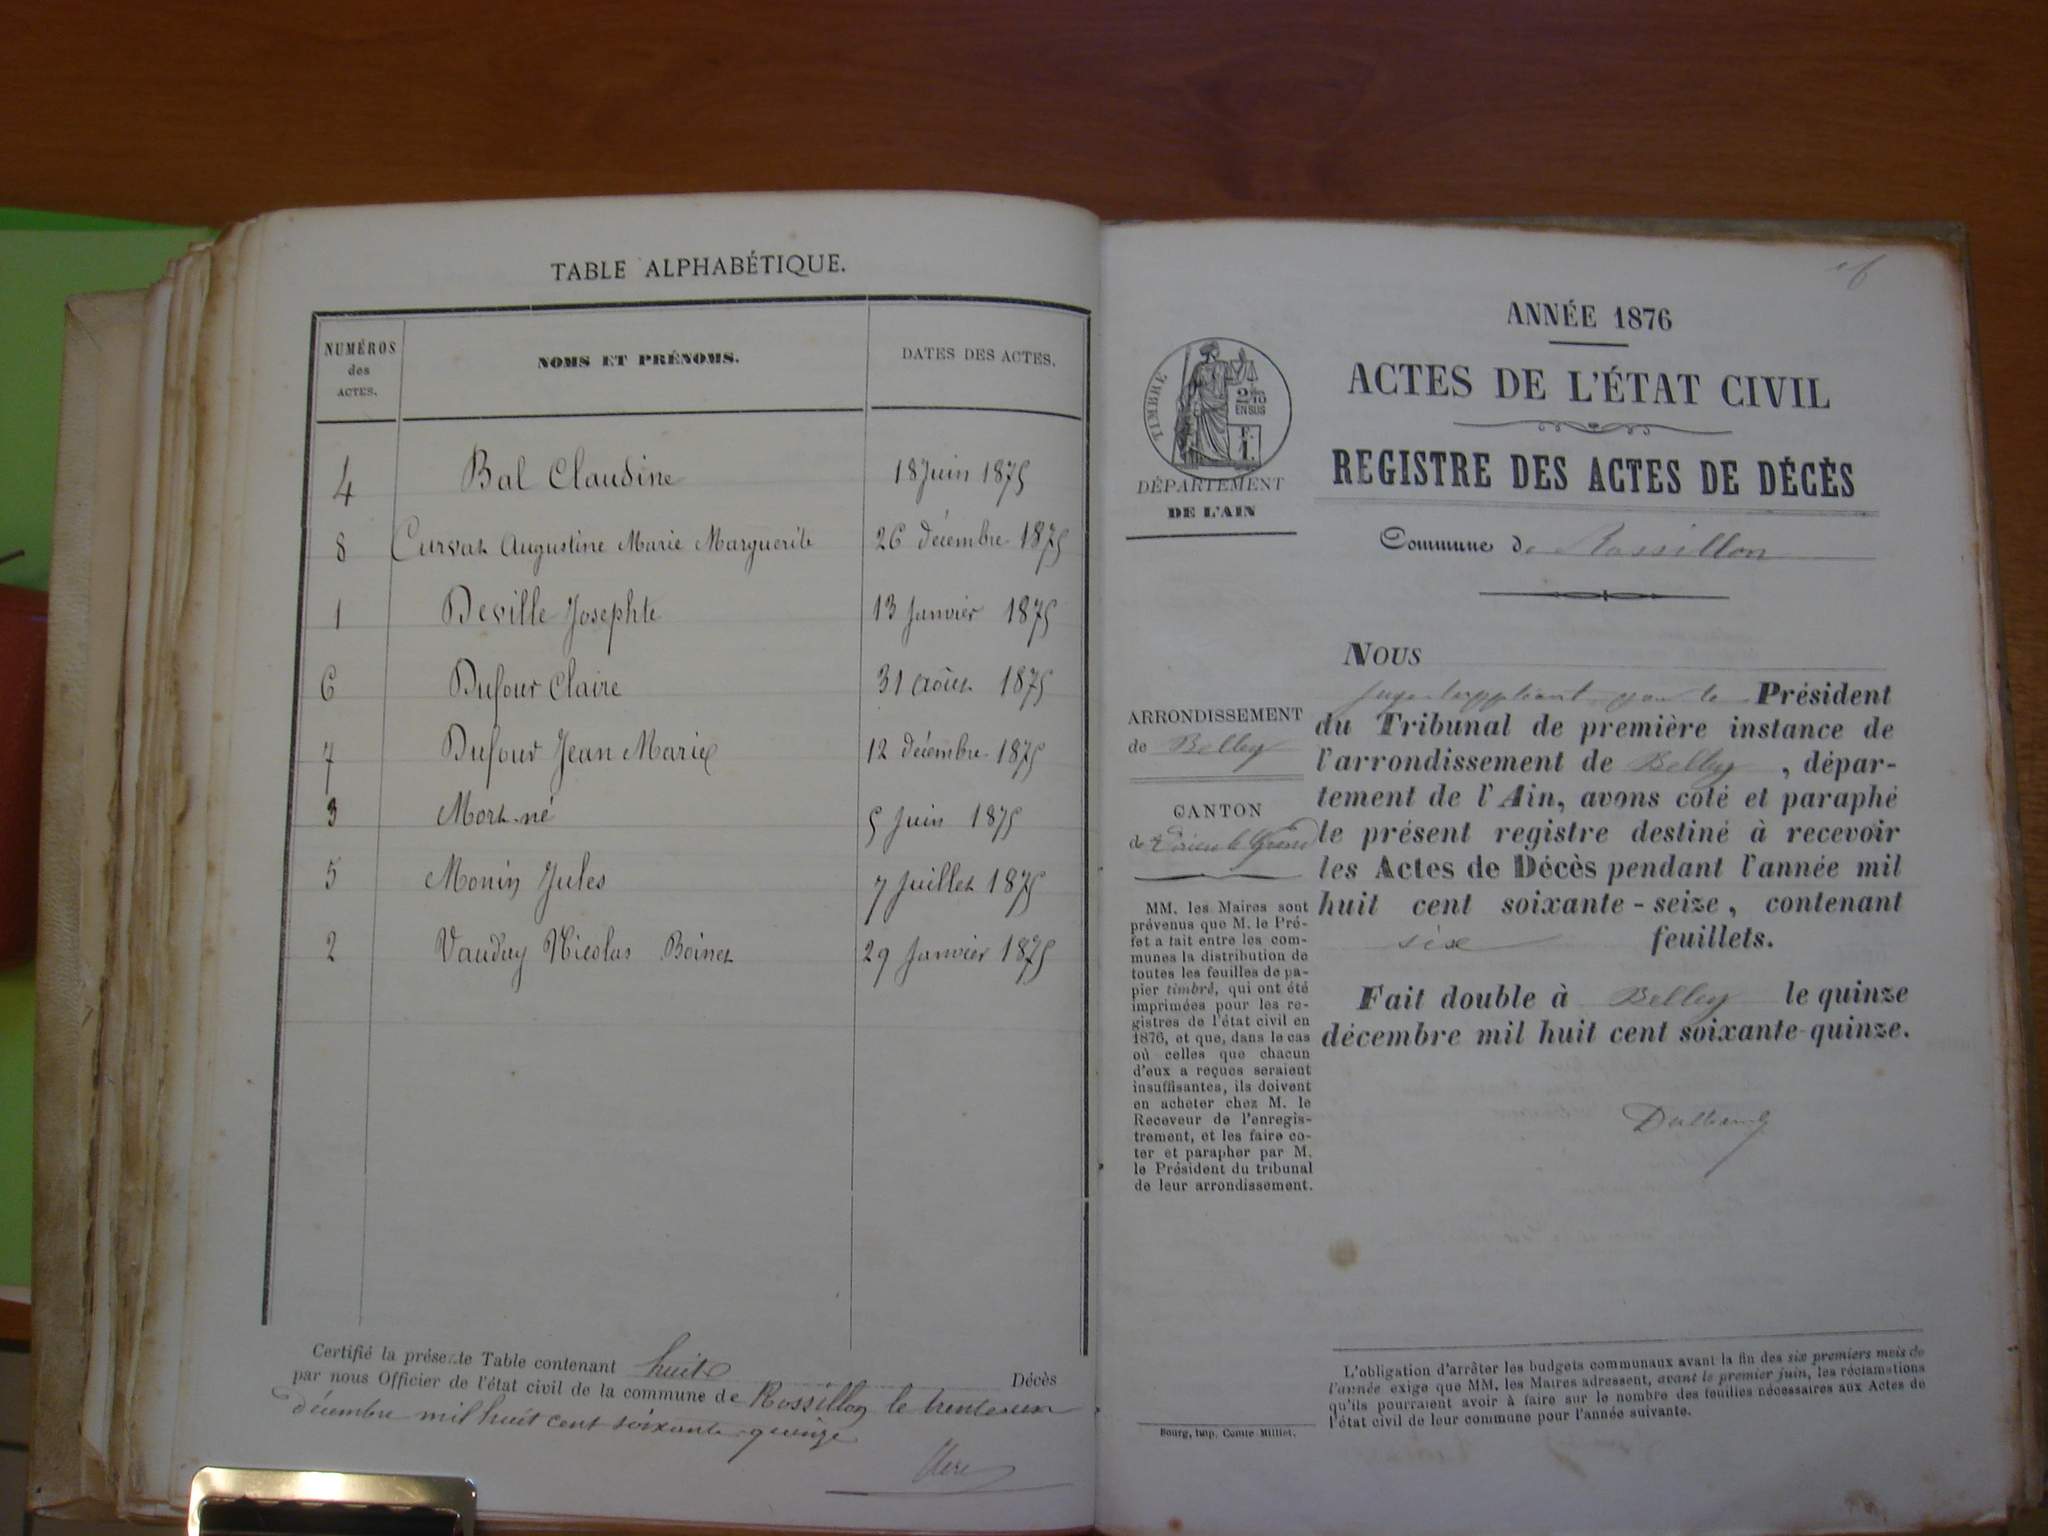 TABLE ALPHABÉTIQUE.
NUMÉROS des ACTES. NOMS ET PRÉNOMS. DATES DES ACTES.
4 Bal Claudine 18 Juin 1875
8 Curvat Augustine Marie Marguerite 26 décembre 1875
1 Deville Josephte 13 Janvier 1875
6 Dufour Claire 31 août 1875
7 Dufour Jean Marie 12 décembre 1875
3 Mort-né 5 Juin 1875
5 Monin Jules 7 Juillet 1875
2 Vauduy Nicolas Boinet 29 Janvier 1875
Certifié la présente Table contenant huit Décès
par nous Officier de l'état civil de la commune de Rossillon le trente-un
décembre mil huit cent soixante-quinze
ANNÉE 1876
ACTES DE L'ÉTAT CIVIL
REGISTRE DES ACTES DE DÉCÈS
Commune de Rossillon
TIMBRE
2/10
EN SUS
DÉPARTEMENT
DE L'AIN
ARRONDISSEMENT
de Belley
CANTON
de Virieu le Grand
MM. les Maires sont
prévenus que M. le Pré-
fet a fait entre les com-
munes la distribution de
toutes les feuilles de pa-
pier timbré, qui ont été
imprimées pour les re-
gistres de l'état civil en
1876, et que, dans le cas
où celles que chacun
d'eux a reçues seraient
insuffisantes, ils doivent
en acheter chez M. le
Receveur de l'enregis-
trement, et les faire co-
ter et parapher par M.
le Président du tribunal
de leur arrondissement.
NOUS
Juge suppléant pour le Président
du Tribunal de première instance de
l'arrondissement de Belley, dépar-
tement de l'Ain, avons coté et paraphé
le présent registre destiné à recevoir
les Actes de Décès pendant l'année mil
huit cent soixante-seize, contenant
six feuillets.
Fait double à Belley le quinze
décembre mil huit cent soixante-quinze.
L'obligation d'arrêter les budgets communaux avant la fin des six premiers mois de
l'année exige que MM. les Maires adressent, avant le premier juin, les réclamations
qu'ils pourraient avoir à faire sur le nombre des feuilles nécessaires aux Actes de
l'état civil de leur commune pour l'année suivante.
Bourg, imp. Comte-Milliet.